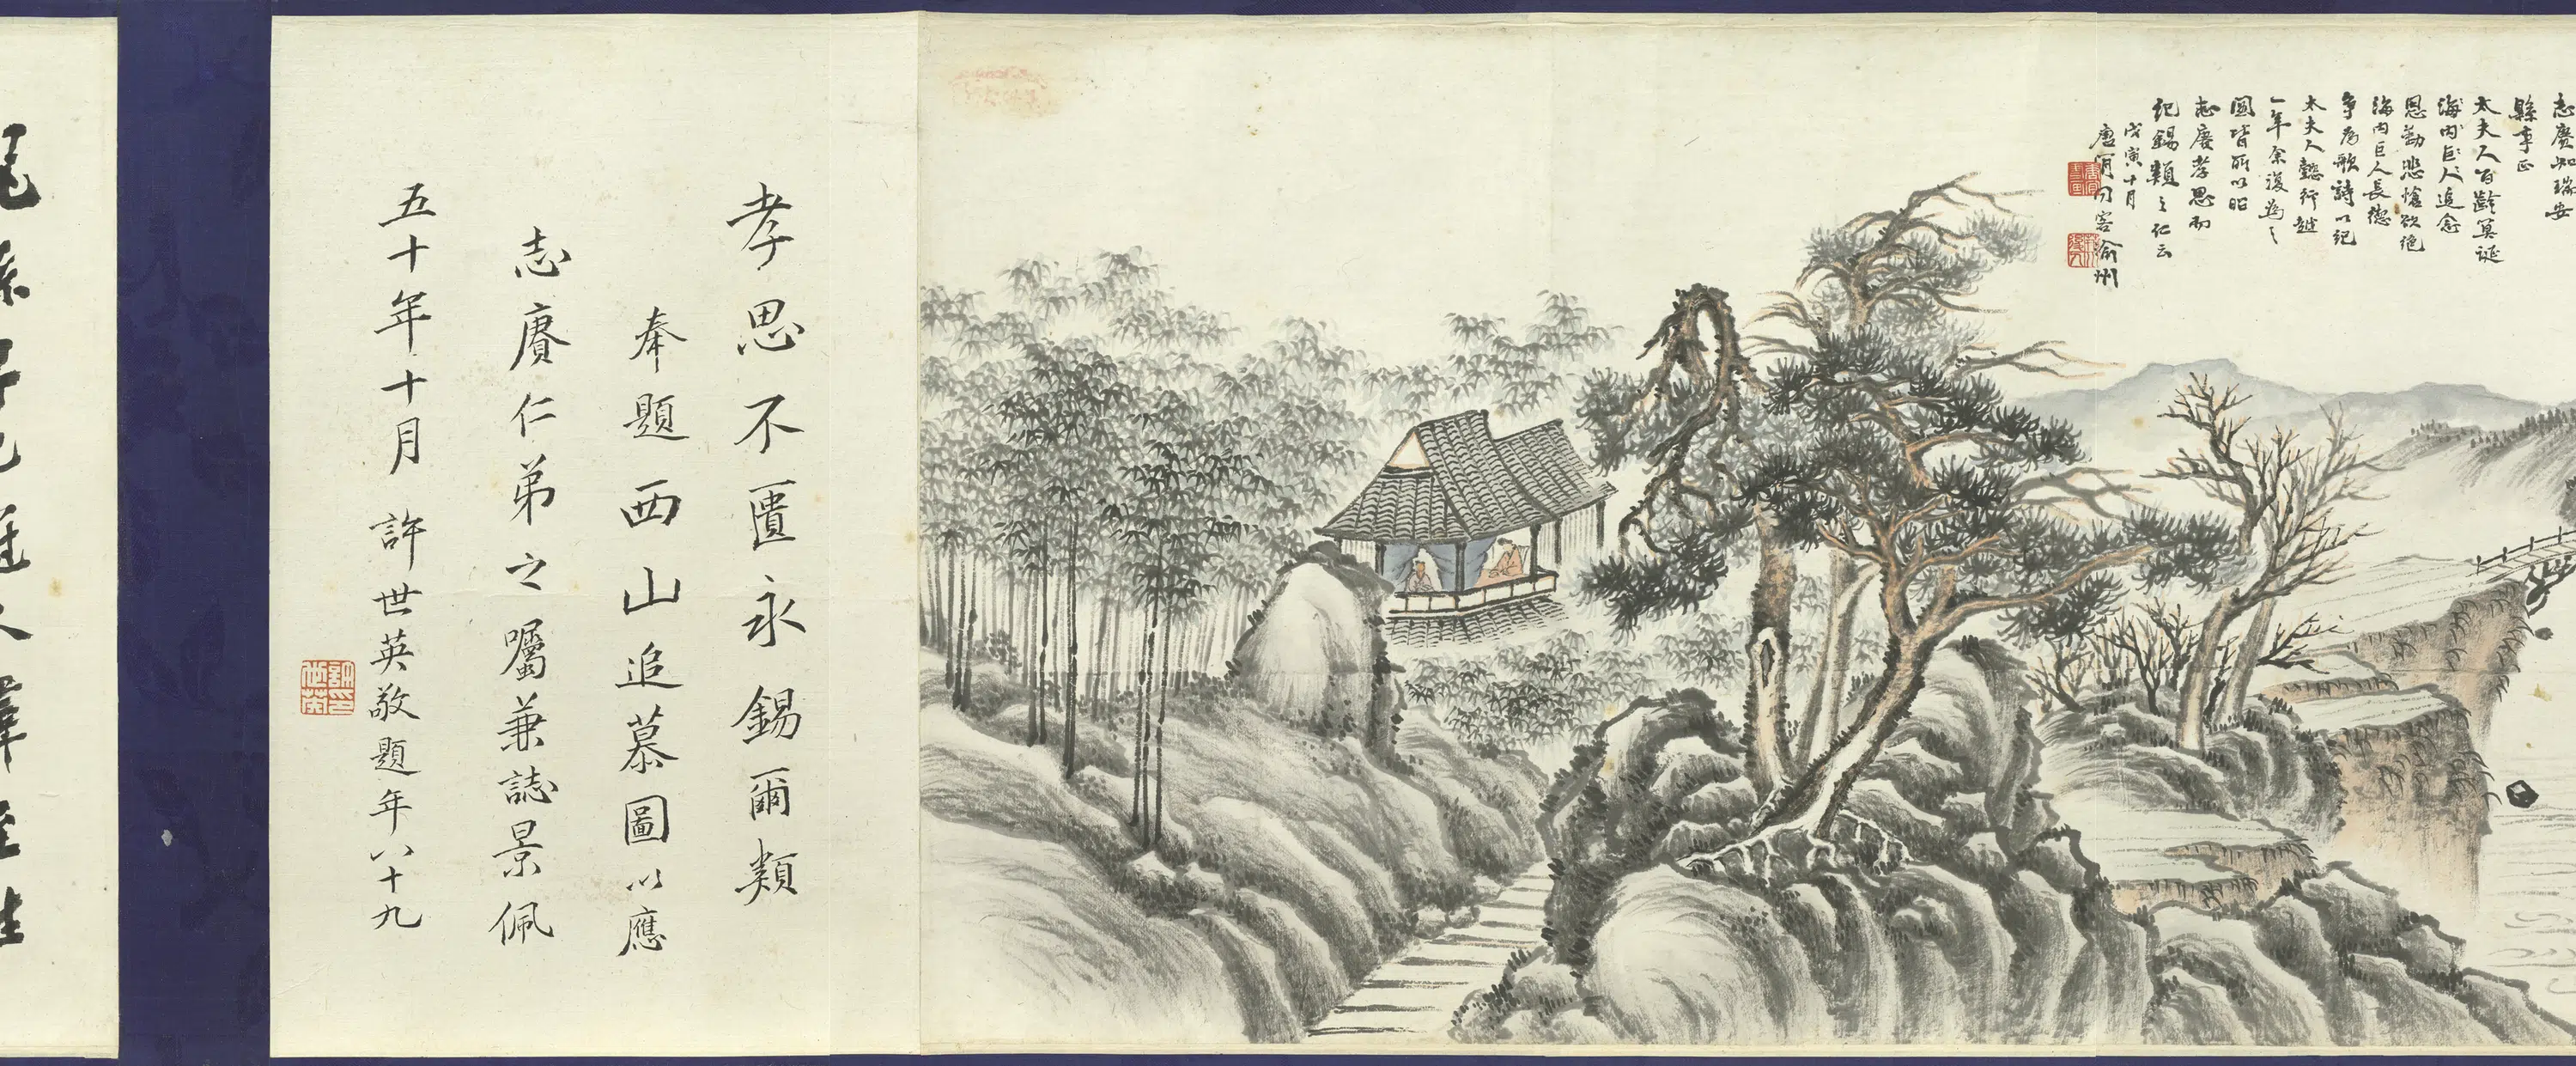 志賡知瑞安
縣事正
太夫人百齡冥誕
海内巨人追念
恩勤悲愴欲絶
海内巨人長德
爭為歌詩以紀
太夫人懿行越
一年余復為之
圖皆所以昭
志賡孝思而
紀錫類之仁云
戊寅十月
孝思不匱永錫爾類
奉題西山追慕圖以應
志賡仁弟之囑兼誌景佩
五十年十月 許世英敬題年八十九
許世英印